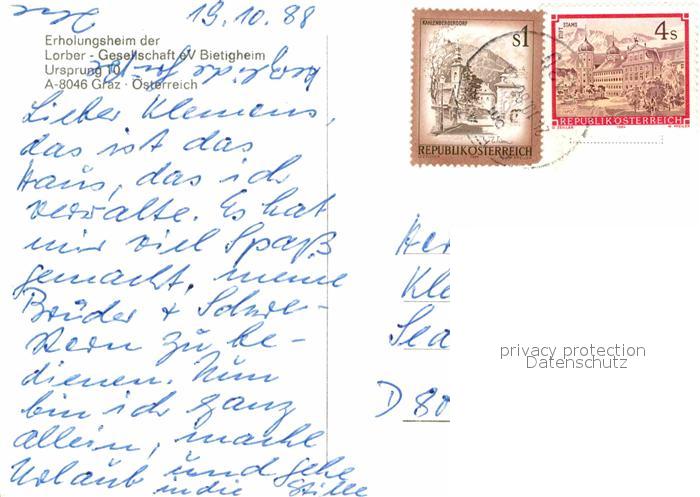 19.10.88
Erholungsheim der
Lorber - Gesellschaft eV Bietigheim
Ursprung 10
A-8046 Graz - Österreich
Lieber Klemens,
das ist das
Haus, das ich
verwalte. Es hat
mir viel Spaß
gemacht, meine
Brüder + Schwe-
stern zu be-
dienen. Nun
bin ich ganz
allein, mache
Urlaub und gehe
in die Stille
KAHLENBERGERDORF
S1
REPUBLIK ÖSTERREICH
STIFT STAMS
4 S
REPUBLIK ÖSTERREICH
Her
Kle
D 80
privacy protection
Datenschutz